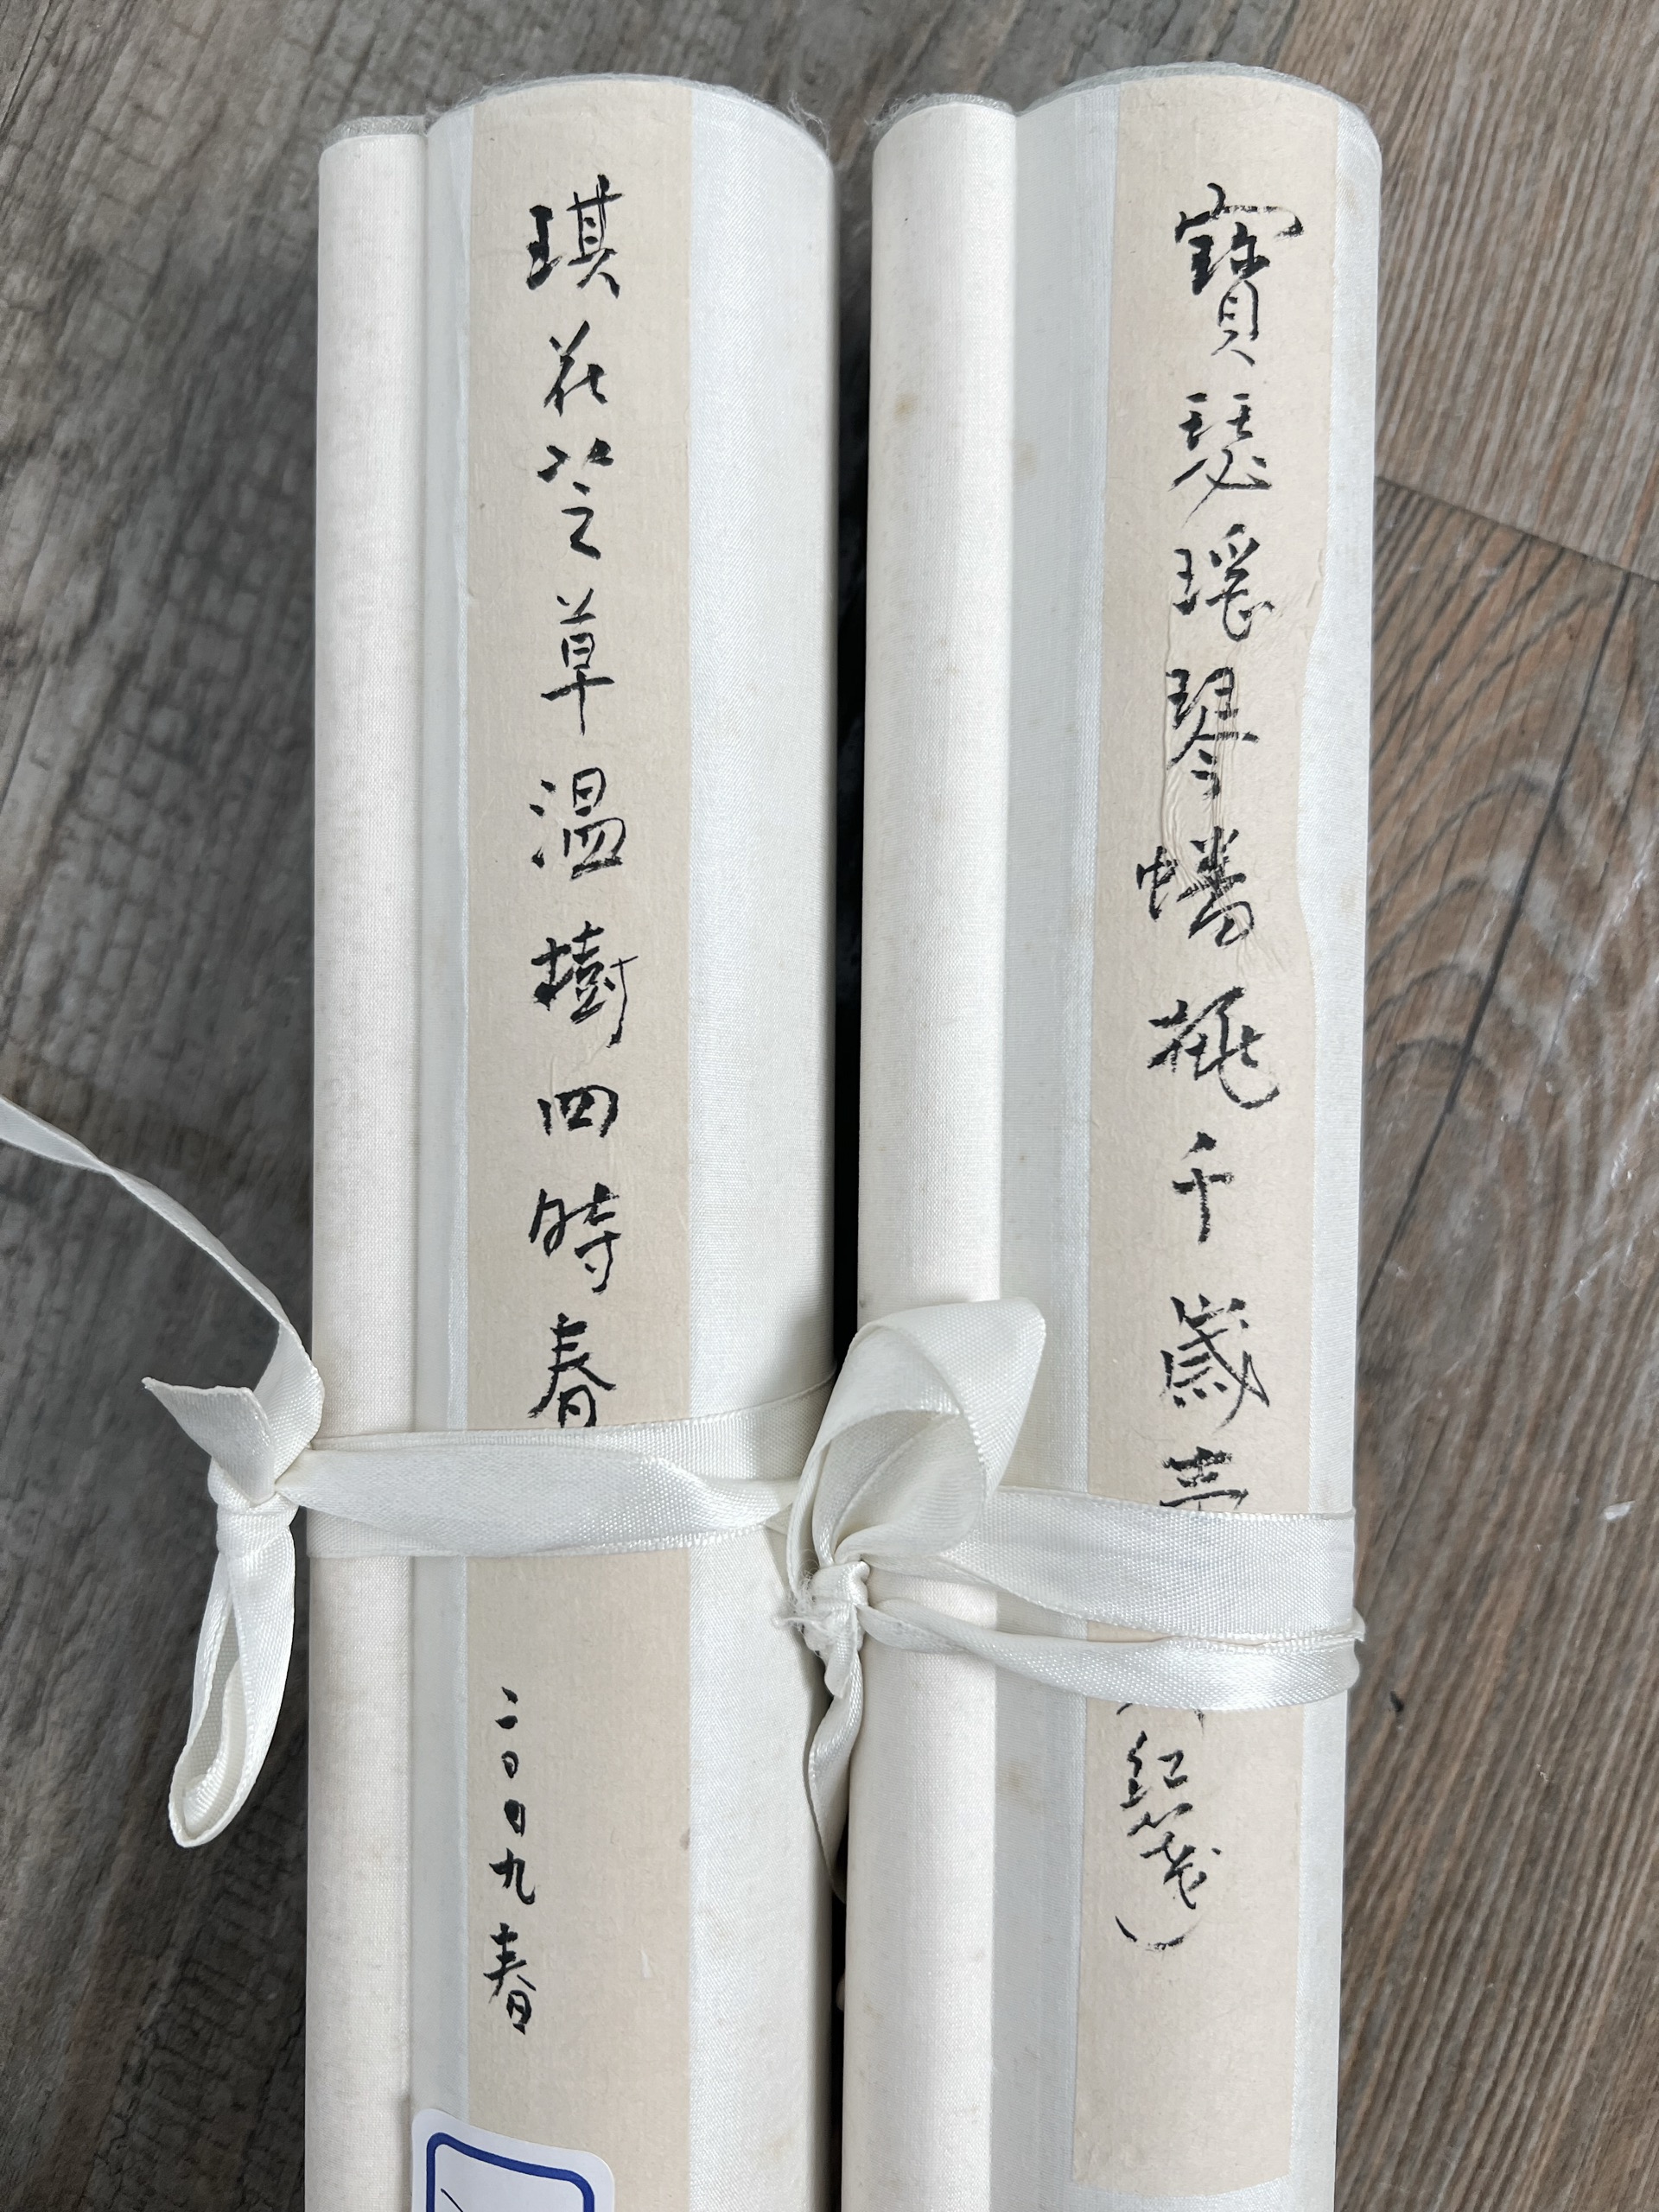 寶瑟瑤琴蟠桃千歲壽
紅箋）
琪花芝草溫樹四時春
二〇〇九春